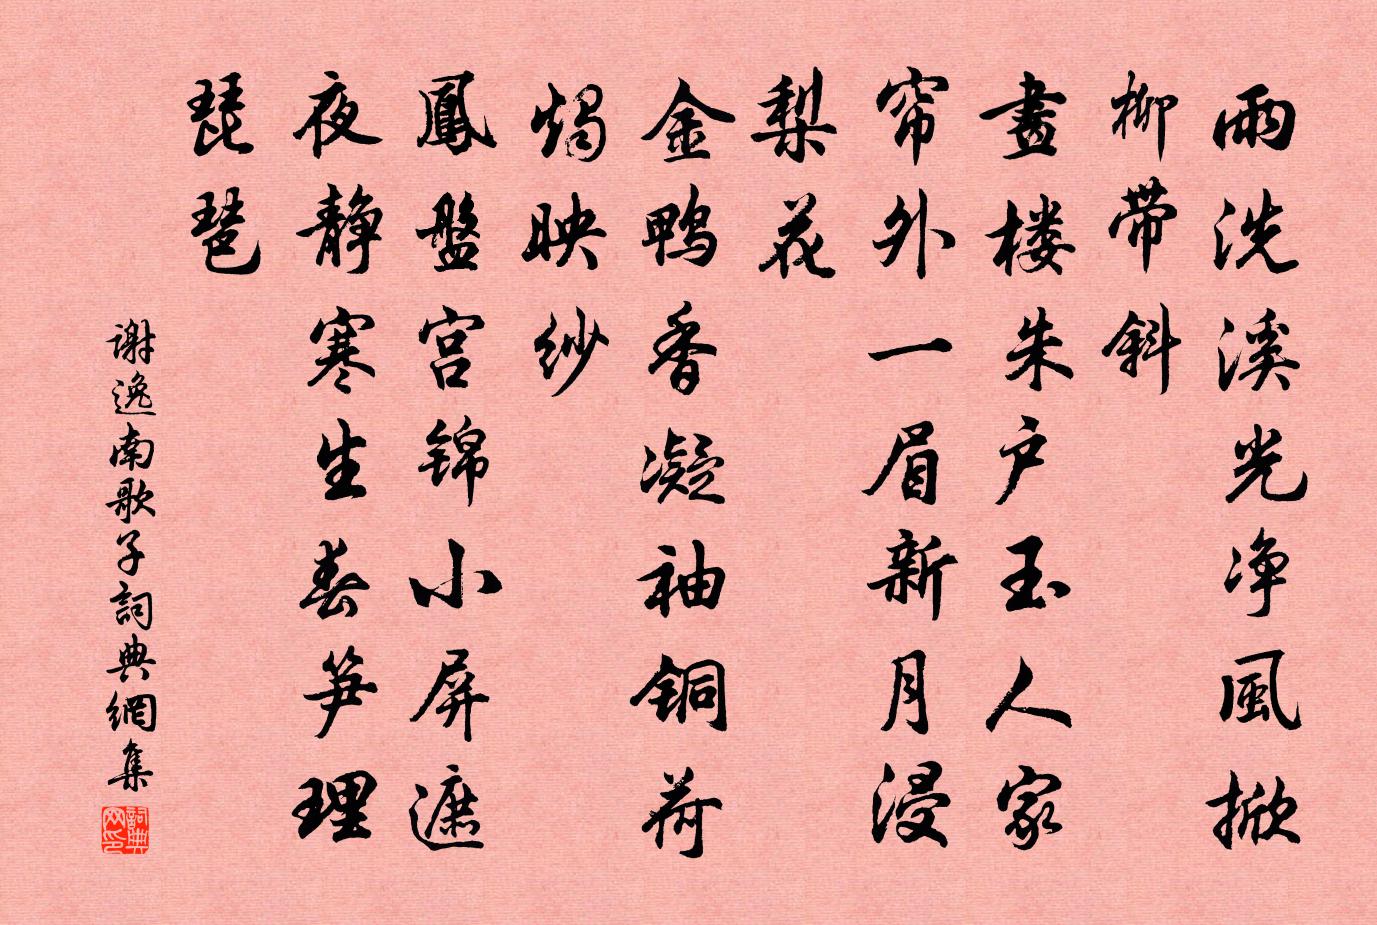 雨洗溪光净風掀
柳带斜
畫楼朱户玉人家
帘外一眉新月浸
梨花
金鸭香凝袖铜荷
燭映纱
鳳盤宫锦小屏遮
夜静寒生春笋理
琵琶
谢逸南歌子詞典網集
詞典网印